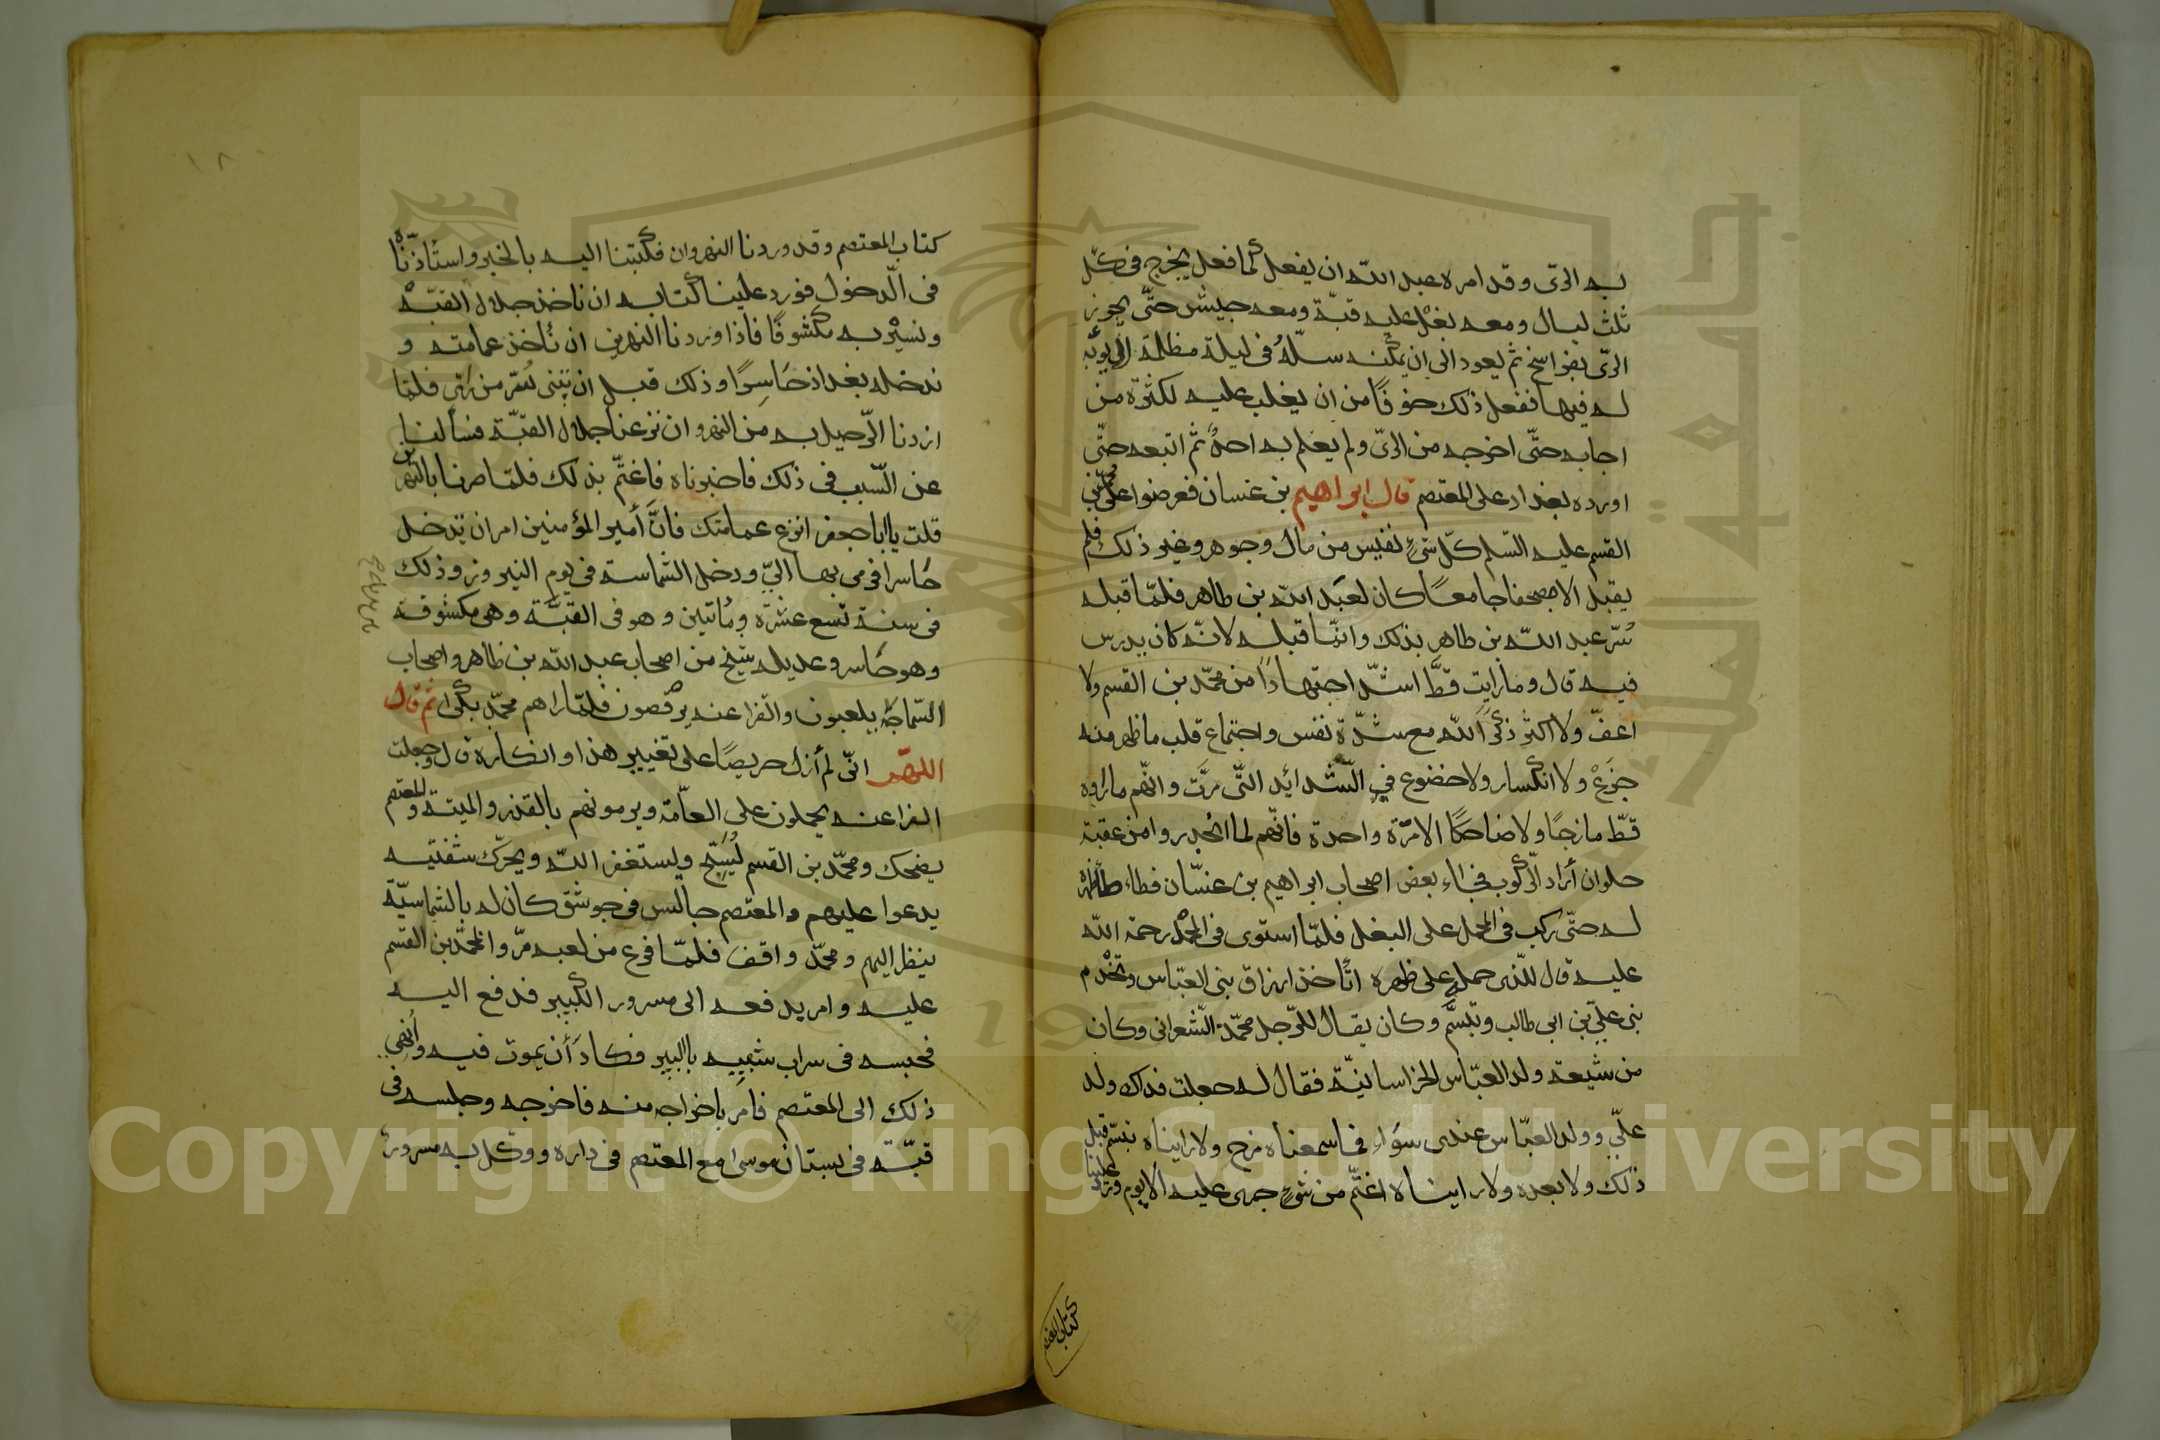 به الرى وقد امره عبد الله ان يفعل كما فعل يخرج فى كل
ثلث ليال ومعه بغل عليه قبّة ومعه جيش حتّى يجوز
الرّى بفراسخ ثم يعود الى ان يمكنه سلّه فى ليلة مظلمة
له فيها ففعل ذلك خوفًا من ان يغلب عليه لكثرة من
اجابه حتّى اخرجه من الرىّ ولم يعلم به احدٌ ثم اتبعه حتّى
اورده بغداد على المعتصم قال ابراهيم بن غسان فعرضوا على محمد بن
القسم عليه السّلم كلّ شئٍ نفيس من مال وجوهر وغير ذلك فلم
يقبل الا مصحفا جامعًا كان لعبد الله بن طاهر فلمّا قبله
سُرّ عبد الله بن طاهر بذلك وانّما قبله لانّه كان يدرس
فيه قال وما رايت قطّ اشدّ اجتهادًا من محمّد بن القسم ولا
اعفّ ولا اكثر ذكرًا لله مع شدّة نفس واجتماع قلب ما ظهر منه
جزع ولا انكسار ولا خضوع في الشّدائد التّى مرّت وانّهم ما راوه
قطّ مازحًا ولا ضاحكًا الا مرّة واحدة فانّهم لما انحدروا من عقبة
حلوان أراد الرّكوب فجاء بعض اصحاب ابراهيم بن غسّان فطاطا ظهره
له حتّى ركب فى المحمل على البغل فلمّا استوى فى المحمل رحمة الله
عليه قال للّذى حمله على ظهره اتأخذ ارزاق بنى العبّاس وتخدم
بنى علىّ بن ابى طالب وتبسّم وكان يقال للرّجل محمّد الشّعرانى وكان
من شيعة ولد العبّاس الخراسانيّة فقال له جعلت فداك ولد
علىّ وولد العبّاس عندى سواء فما سمعناه مزح ولا رايناه تبسّم قبل
ذلك ولا بعده ولا رايناه اغتمّ من شئٍ جرى عليه الا يوم ورد علينا
كتاب المعتصم وقد وردنا النهروان فكتبنا اليه بالخبر واستأذنّاه
فى الّدخول فورد علينا كتابه ان ناخذ جلال القبّة
ونسير به مكشوفًا فاذا وردنا النهرين ان نأخذ عمامته و
ندخله بغداد حاسرًا وذلك قبل ان تبنى سُرّ من رءى فلمّا
اردنا الرّحيل به من النهروان نزعنا جلال القبّة فسألنا
عن السّبب فى ذلك فاخبرناه فاغتمّ بذلك فلمّا صرنا بالنهرين
قلت يا ابا جعفر انزع عمامتك فانّ أمير المؤمنين امر ان تدخل
حاسرا فرمى بها الىّ ودخل الشماسة فى يوم النيروز وذلك
فى سنة تسع عشرة ومأتين وهو فى القبّة وهى مكشوفة
وهو حاسر وعديله شيخ من اصحاب عبد الله بن طاهر واصحاب
السّماجة يلعبون والفراعنه يرقصون فلمّا راهم محمّد بكى ثم قال
اللهّم انّى لم أزل حريصًا على تغيير هذا وانكاره قال وجعلت
الفراعنه يحملون على العامّة ويرمونهم بالقذر والميتة والمعتصم
يضحك ومحمّد بن القسم يُسبّح ويستغفر الله ويحرّك شفتيه
يدعوا عليهم والمعتصم جالس فى جوشق كان له بالشماسيّة
ينظر اليهم ومحمّد واقف فلمّا فرغ من لعبه مرّوا بمحمّد بن القسم
عليه وامر بدفعه الى مسرور الكبير فدفع اليه
فحبسه فى سراب شبيه بالبير فكاد أن يموت فيه وأنهى
ذلك الى المعتصم فامر باخراجه منه فاخرجه وحبسه فى
قبّة فى بستان موسى مع المعتصم فى داره ووكل به مسرور